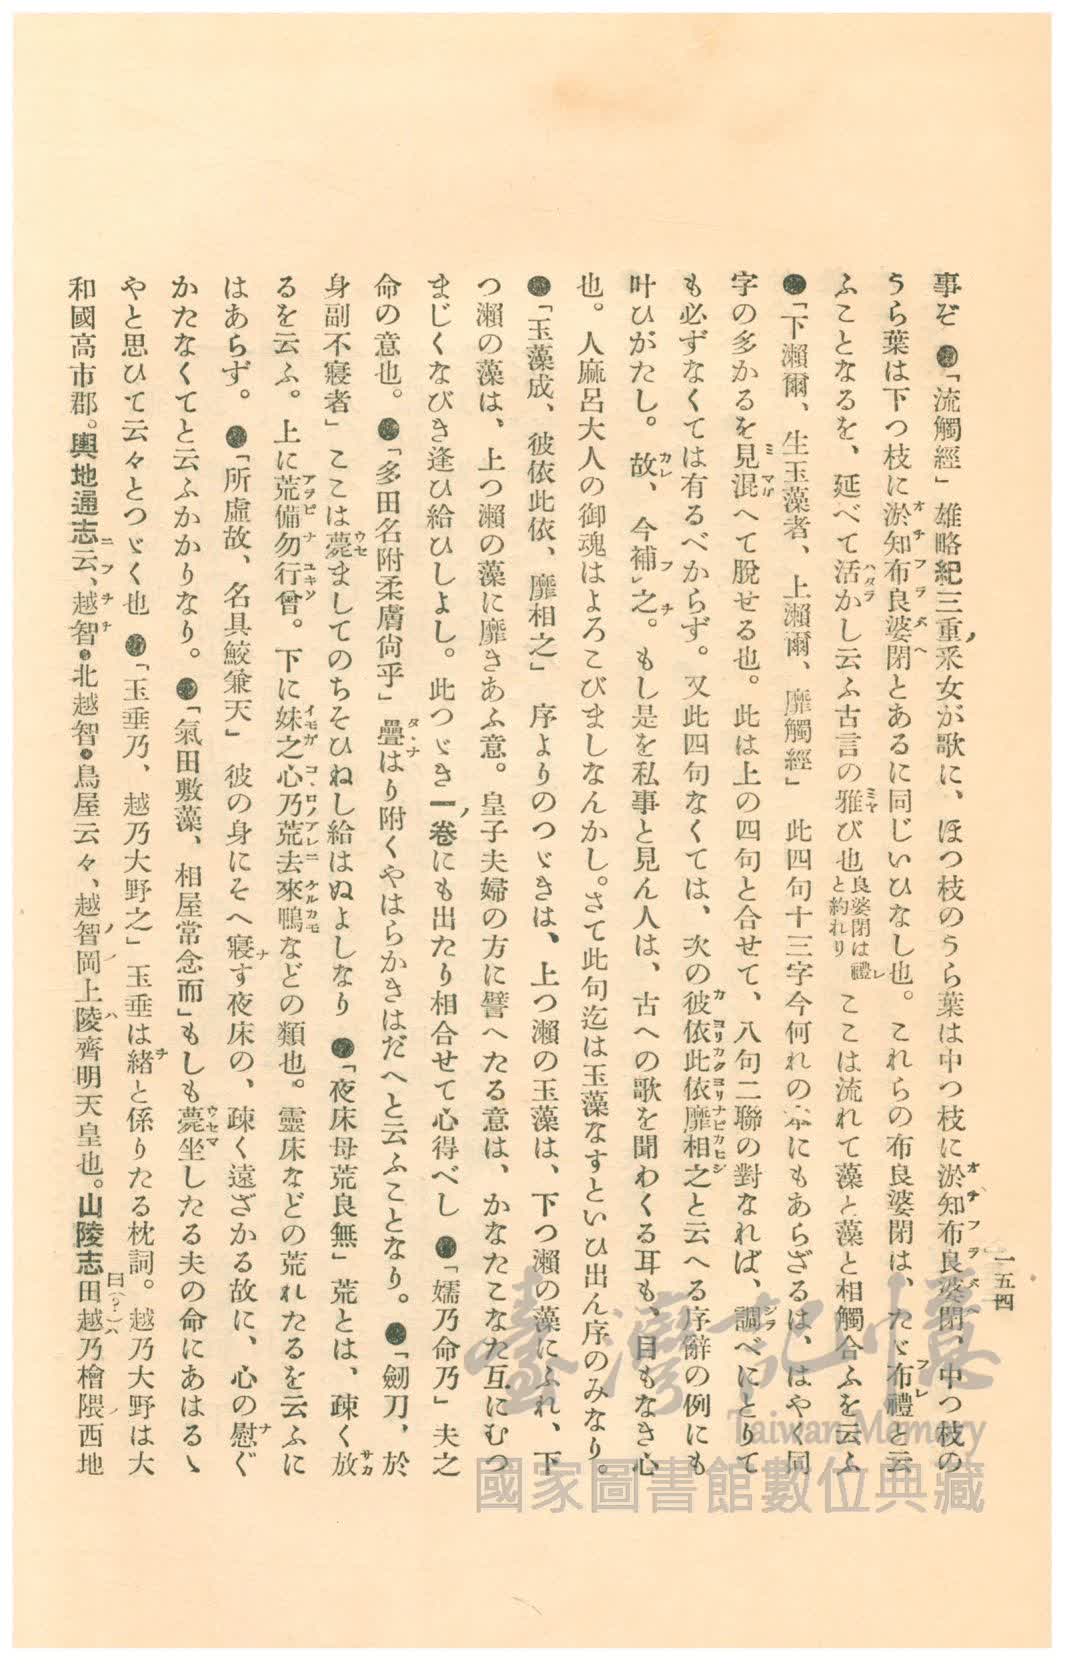 一五四
事ぞ ●「流觸經」 雄略紀三重釆女が歌に、ほつ枝のうら葉は中つ枝に淤知布良婆閉、中つ枝の
うら葉は下つ枝に淤知布良婆閉とあるに同じいひなし也。これらの布良婆閉は、たゞ布禮と云
ふことなるを、延べて活かし云ふ古言の雅び也良婆閉は禮と約れり ここは流れて藻と藻と相觸合ふを云ふ
●「下瀨爾、生玉藻者、上瀨爾、靡觸經」 此四句十三字今何れの本にもあらざるは、はやく同
字の多かるを見混へて脫せる也。此は上の四句と合せて、八句二聯の對なれば、調べにとりて
も必ずなくては有るべからず。又此四句なくては、次の彼依此依靡相之と云へる序辭の例にも
叶ひがたし。故、今補之。もし是を私事と見ん人は、古への歌を聞わくる耳も、目もなき心
也。人麻呂大人の御魂はよろこびましなんかし。さて此句迄は玉藻なすといひ出ん序のみなり。
●「玉藻成、彼依此依、靡相之」 序よりのつゞきは、上つ瀨の玉藻は、下つ瀨の藻にふれ、下
つ瀨の藻は、上つ瀨の藻に靡きあふ意。皇子夫婦の方に譬へたる意は、かなたこなた互にむつ
まじくなびき逢ひ給ひしよし。此つゞき一卷にも出たり相合せて心得べし ●「嬬乃命乃」夫之
命の意也。●「多田名附柔膚尙乎」 疊はり附くやはらかきはだへと云ふことなり。●「劒刀、於
身副不寢者」 ここは薨ましてのちそひねし給はぬよしなり ●「夜床母荒良無」 荒とは、疎く放
るを云ふ。上に荒備勿行曾。下に妹之心乃荒去來鴨などの類也。靈床などの荒れたるを云ふに
はあらず。●「所虛故、名具鮫兼天」 彼の身にそへ寢す夜床の、疎く遠ざかる故に、心の慰ぐ
かたなくてと云ふかかりなり。●「氣田敷藻、相屋常念而」もしも薨坐したる夫の命にあはるゝ
やと思ひて云々とつゞく也 ●「玉垂乃、越乃大野之」 玉垂は緖と係りたる枕詞。越乃大野は大
和國高市郡。輿地通志云、越智・北越智・鳥屋云々、越智岡上陵齊明天皇也。山陵志田越乃檜隈西地